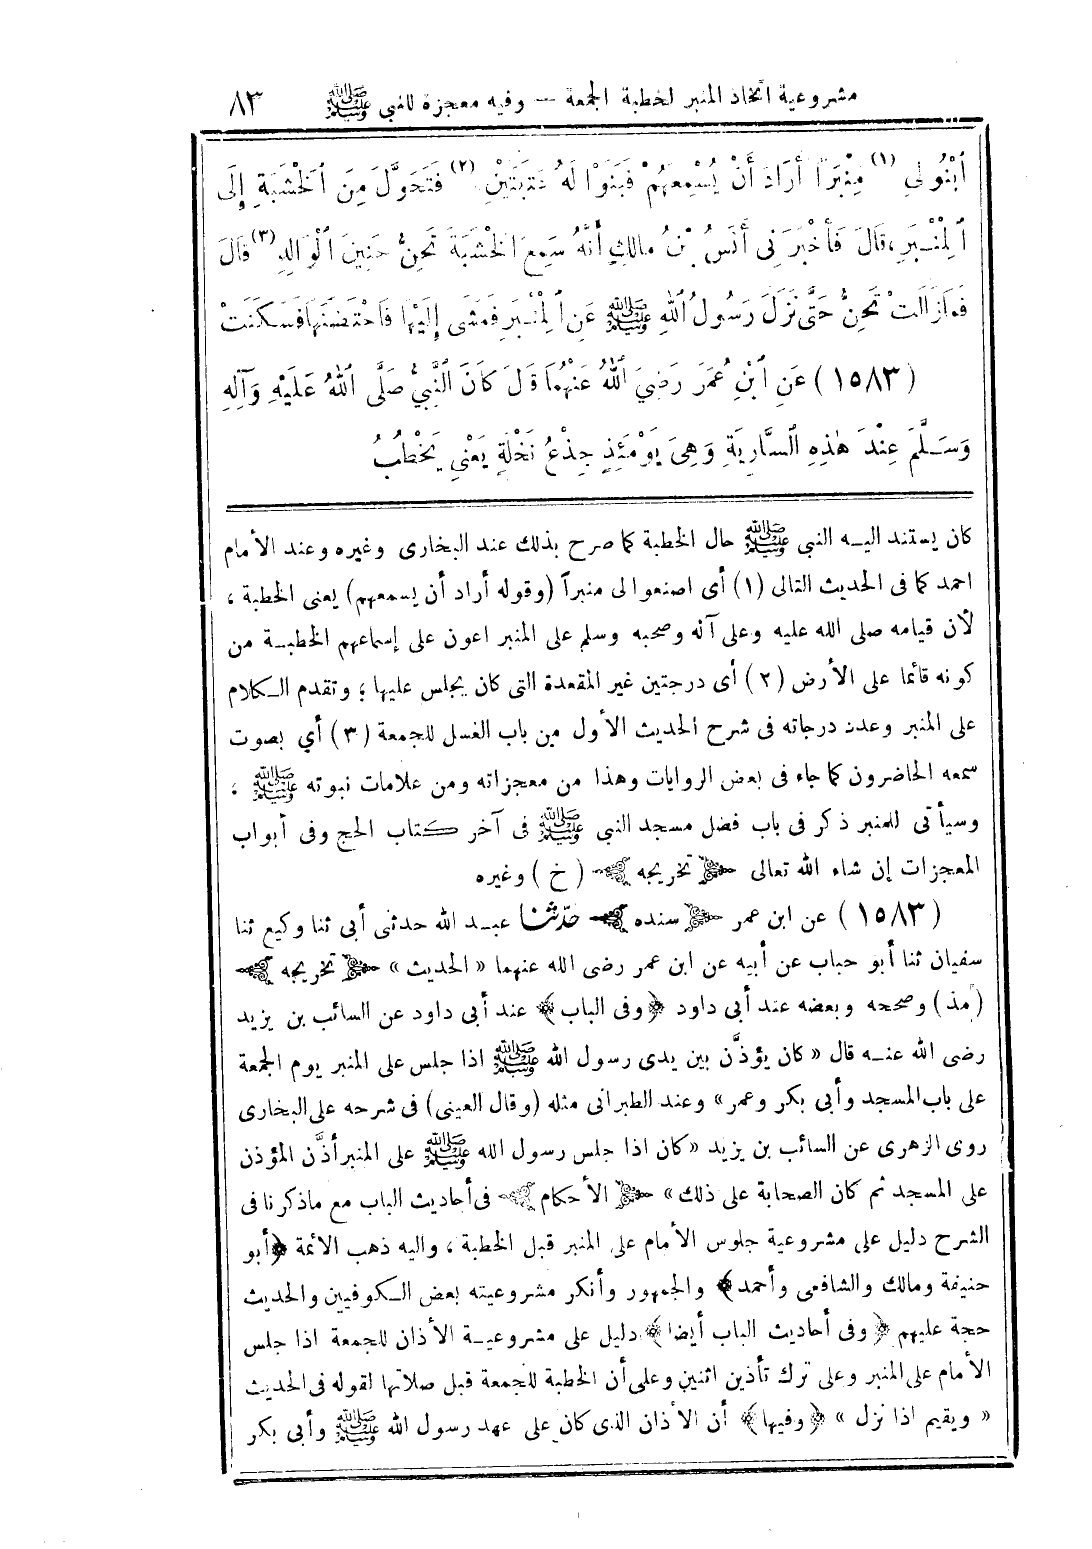 مشروعية اتخاذ المنبر لخطبة الجمعة — وفيه معجزة للنبي ﷺ ٨٣
ٱبْنُوا لِي (١) مِنْبَرًا أَرَادَ أَنْ يُسْمِعَهُمْ فَبَنَوْا لَهُ عَتَبَتَيْنِ (٢) فَتَحَوَّلَ مِنَ ٱلْخَشَبَةِ إِلَى
ٱلْمِنْبَرِ، قَالَ فَأَخْبَرَنِى أَنَسُ بْنُ مَالِكٍ أَنَّهُ سَمِعَ الْخَشَبَةَ تَحِنُّ حَنِينَ الْوَالِدِ (٣) قَالَ
فَمَا زَالَتْ تَحِنُّ حَتَّى نَزَلَ رَسُولُ ٱللهِ ﷺ عَنِ ٱلْمِنْبَرِ فَمَشَى إِلَيْهَا فَاحْتَضَنَهَا فَسَكَنَتْ
(١٥٨٣) عَنِ ٱبْنِ عُمَرَ رَضِيَ ٱللهُ عَنْهُمَا قَالَ كَانَ ٱلنَّبِيُّ صَلَّى ٱللهُ عَلَيْهِ وَآلِهِ
وَسَلَّمَ عِنْدَ هٰذِهِ ٱلسَّارِيَةِ وَهِيَ يَوْمَئِذٍ جِذْعُ نَخْلَةٍ يَعْنِي يَخْطُبُ
كان يستند اليه النبي ﷺ حال الخطبة كما صرح بذلك عند البخارى وغيره وعند الأمام
احمد كما فى الحديث التالى (١) أى اصنعوا لى منبراً (وقوله أراد أن يسمعهم) يعنى الخطبة ،
لأن قيامه صلى الله عليه وعلى آله وصحبه وسلم على المنبر اعون على إسماعهم الخطبة من
كونه قائما على الأرض (٢) أى درجتين غير المقعدة التى كان يجلس عليها ؛ وتقدم الكلام
على المنبر وعدد درجاته فى شرح الحديث الأول من باب الغسل للجمعة (٣) أي بصوت
سمعه الحاضرون كما جاء فى بعض الروايات وهذا من معجزاته ومن علامات نبوته ﷺ ،
وسيأتى للمنبر ذكر فى باب فضل مسجد النبي ﷺ فى آخر كتاب الحج وفى أبواب
المعجزات إن شاء الله تعالى ﴿ تخريجه ﴾ (خ) وغيره
(١٥٨٣) عن ابن عمر ﴿ سنده ﴾ حدثنا عبد الله حدثنى أبى ثنا وكيع ثنا
سفيان ثنا أبو حباب عن أبيه عن ابن عمر رضى الله عنهما « الحديث » ﴿ تخريجه ﴾
(مذ) وصححه وبعضه عند أبى داود ﴿وفى الباب﴾ عند أبى داود عن السائب بن يزيد
رضى الله عنه قال « كان يؤذَّن بين يدى رسول الله ﷺ اذا جلس على المنبر يوم الجمعة
على باب المسجد وأبى بكر وعمر» وعند الطبرانى مثله (وقال العينى) فى شرحه على البخارى
روى الزهرى عن السائب بن يزيد «كان اذا جلس رسول الله ﷺ على المنبر أذَّن المؤذن
على المسجد ثم كان الصحابة على ذلك» ﴿ الأحكام ﴾ فى أحاديث الباب مع ماذكرنا فى
الشرح دليل على مشروعية جلوس الأمام على المنبر قبل الخطبة ، واليه ذهب الائمة ﴿أبو
حنيفة ومالك والشافعى وأحمد﴾ والجمهور وأنكر مشروعيته بعض الكوفيين والحديث
حجة عليهم ﴿وفى أحاديث الباب أيضا﴾ دليل على مشروعية الأذان للجمعة اذا جلس
الأمام على المنبر وعلى ترك تأذين اثنين وعلى أن الخطبة للجمعة قبل صلاتها لقوله فى الحديث
« ويقيم اذا نزل » ﴿وفيها﴾ أن الأذان الذى كان على عهد رسول الله ﷺ وأبى بكر